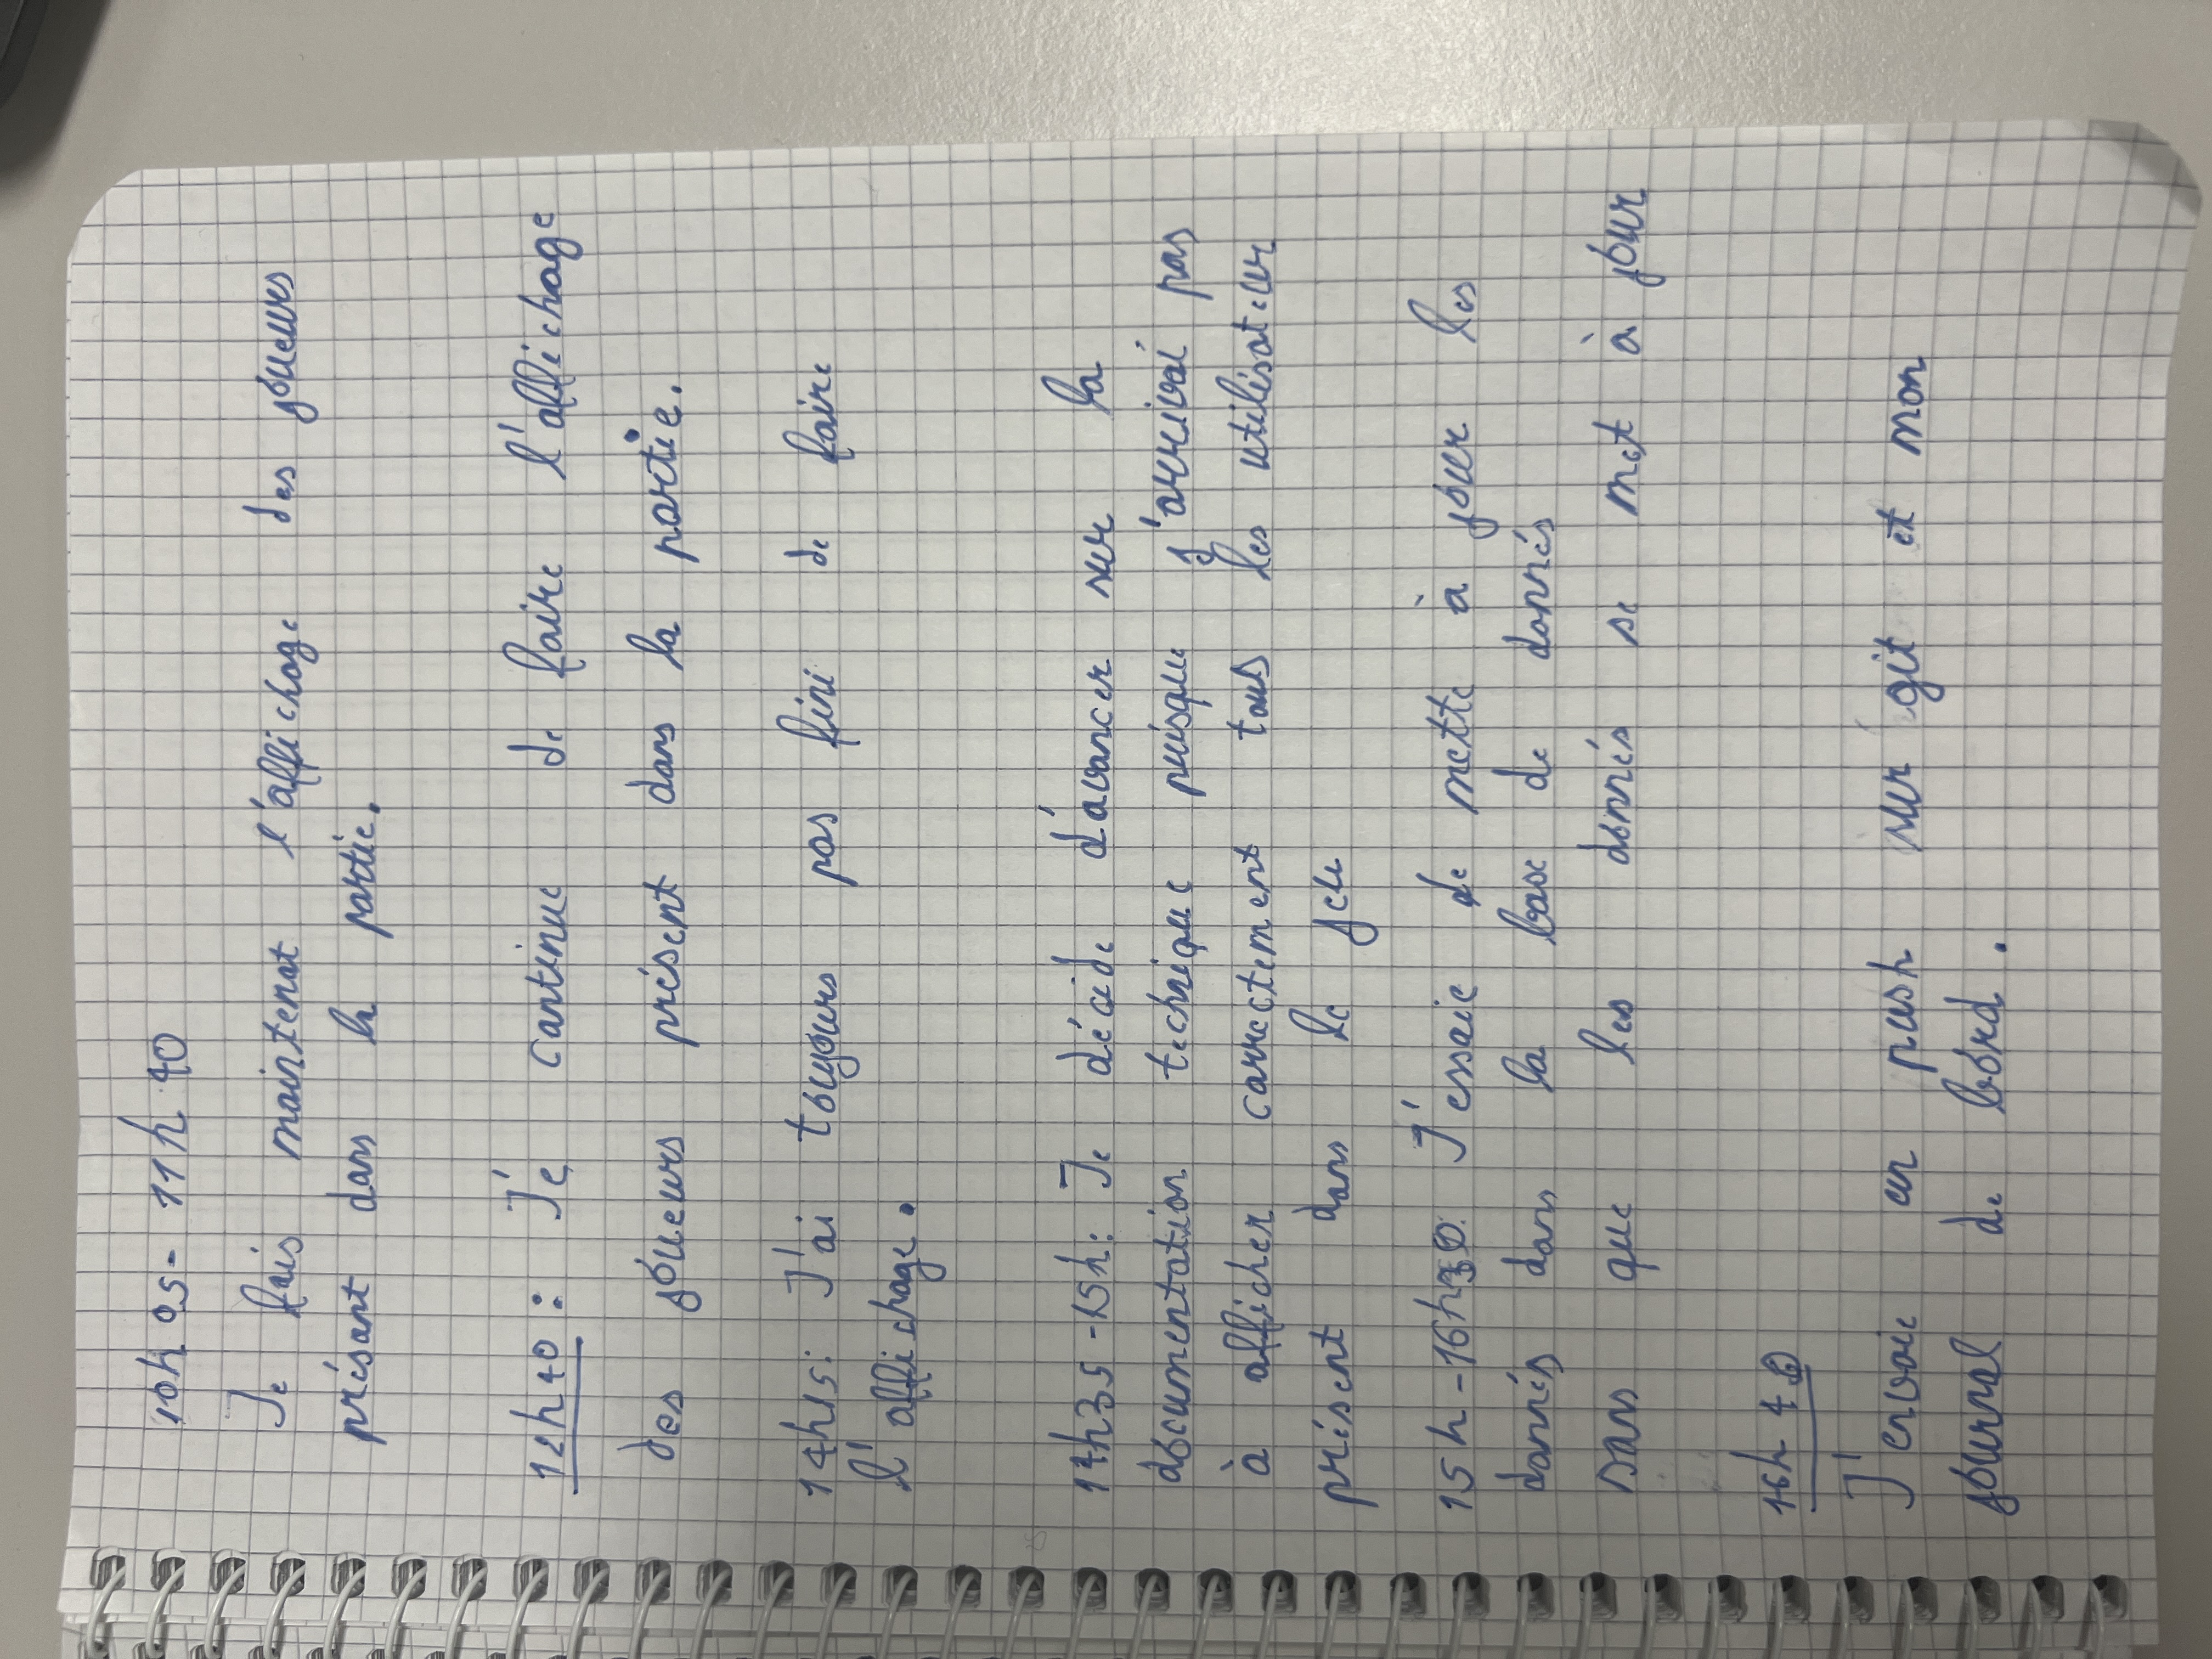 10h05 - 11h40
Je fais maintenat l'affichage des joueurs
présant dans la partie.
12h40 : Je continue de faire l'affichage
des joueurs présent dans la partie.
14h15: J'ai toujours pas fini de faire
l'affichage.
14h35 - 15h: Je décide d'avancer sur la
documentation technique puisque j'arrivai pas
à afficher correctement tous les utilisateur
présent dans le jeu
15h - 16h30: J'essaie de mette à jour les
donnés dans la base de donnés
sans que les donnés se met à jour
16h40
J'envoie un push sur git et mon
journal de bord.